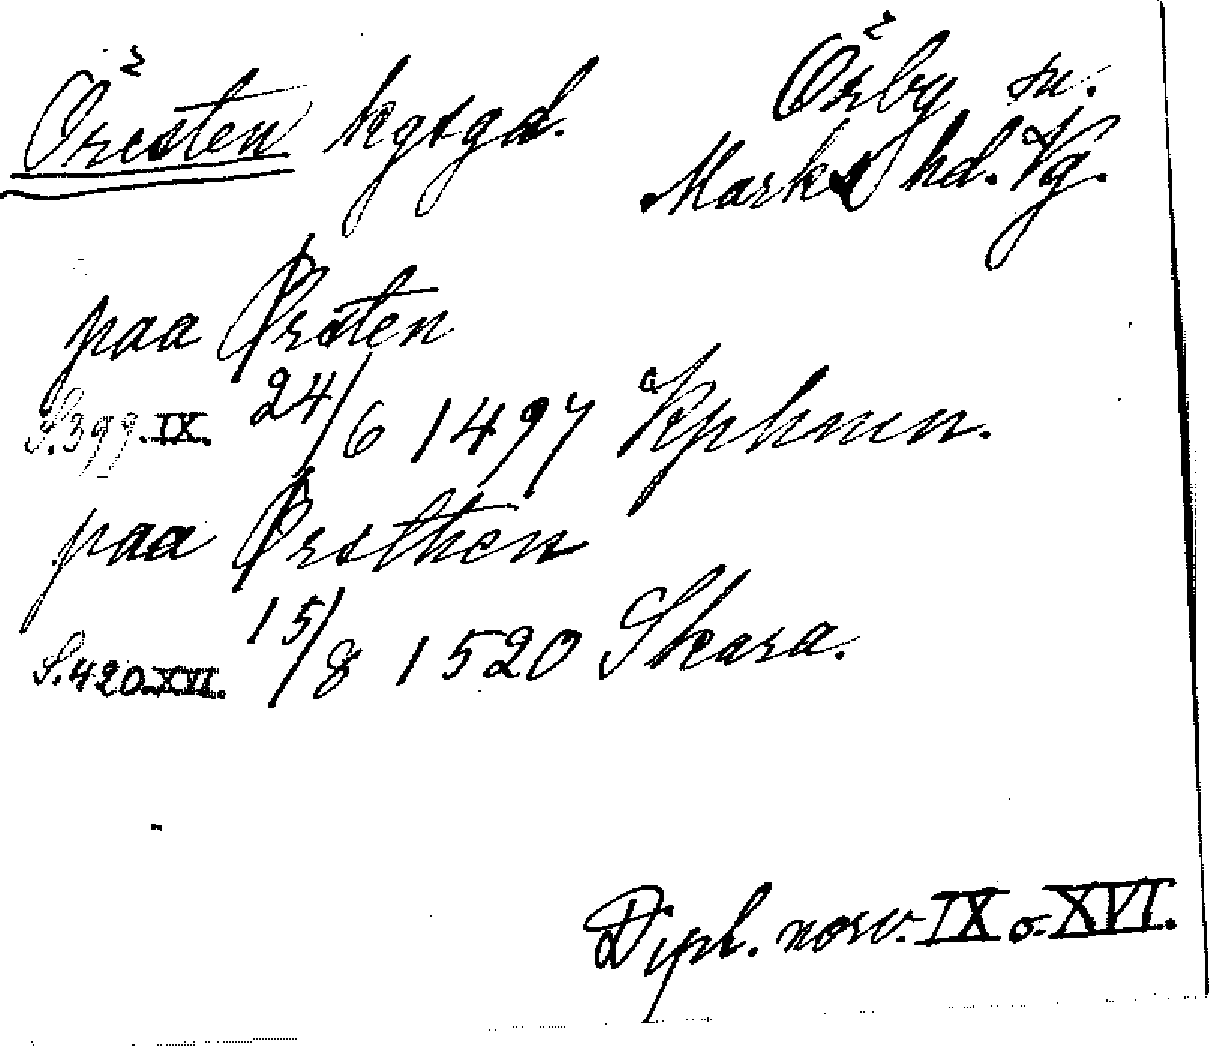 Öresten kgsgd.
Örby sn.
Marks hd. Vg.
paa Ørsten
S.399.IX. 24/6 1497 Kphmn.
paa Ørsthen
S.420.XVI. 15/8 1520 Skara.
Dipl. norv. IX o. XVI.